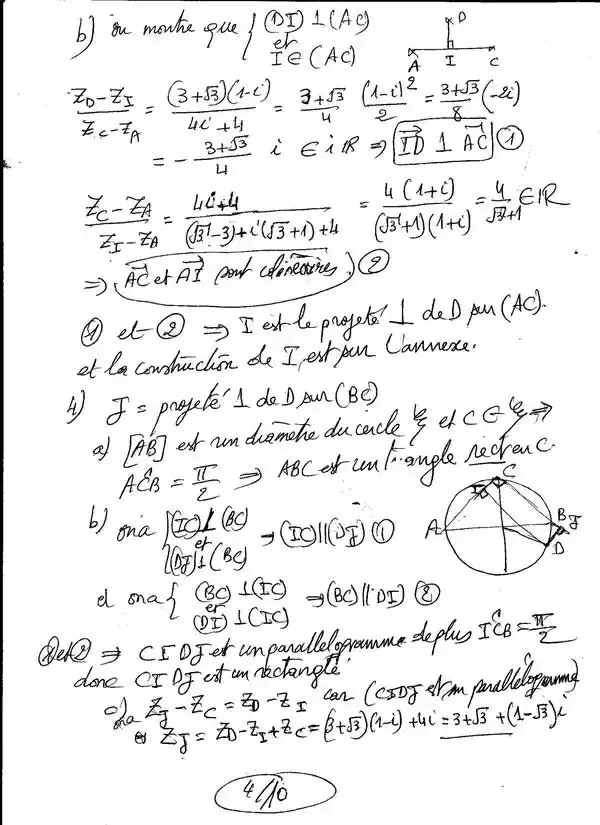 b) on montre que { (DI) ⊥ (AC) et I ∈ (AC)
D
A I C
(Z_D − Z_I)/(Z_C − Z_A) = (3+√3)(1−i)/(4i+4) = (3+√3)/4 (1−i)²/2 = (3+√3)/8 (−2i)
= − (3+√3)/4 i ∈ iR ⇒ ID ⊥ AC ①
(Z_C − Z_A)/(Z_I − Z_A) = (4i+4)/((√3−3)+i(√3+1)+4) = 4(1+i)/((√3+1)(1+i)) = 4/(√3+1) ∈ IR
⇒ AC et AI sont colinéaires ②
① et ② ⇒ I est le projeté ⊥ de D sur (AC).
et la construction de I, est sur l'annexe.
4) J = projeté ⊥ de D sur (BC)
a) [AB] est un diamètre du cercle ℰ et C ∈ ℰ ⇒
AĈB = π/2 ⇒ ABC est un triangle rect en C.
A I C B J D
b) on a { (IC) ⊥ (BC) et (DJ) ⊥ (BC) ⇒ (IC) || (DJ) ①
et on a { (BC) ⊥ (IC) et (DI) ⊥ (IC) ⇒ (BC) || (DI) ②
① et ② ⇒ CIDJ est un parallelogramme de plus IĈB = π/2
donc CIDJ est un rectangle
c) on a Z_J − Z_C = Z_D − Z_I car (CIDJ est un parallélogramme)
Z_J = Z_D − Z_I + Z_C = (3+√3)(1−i) + 4i = 3+√3 + (1−√3)i
4/10